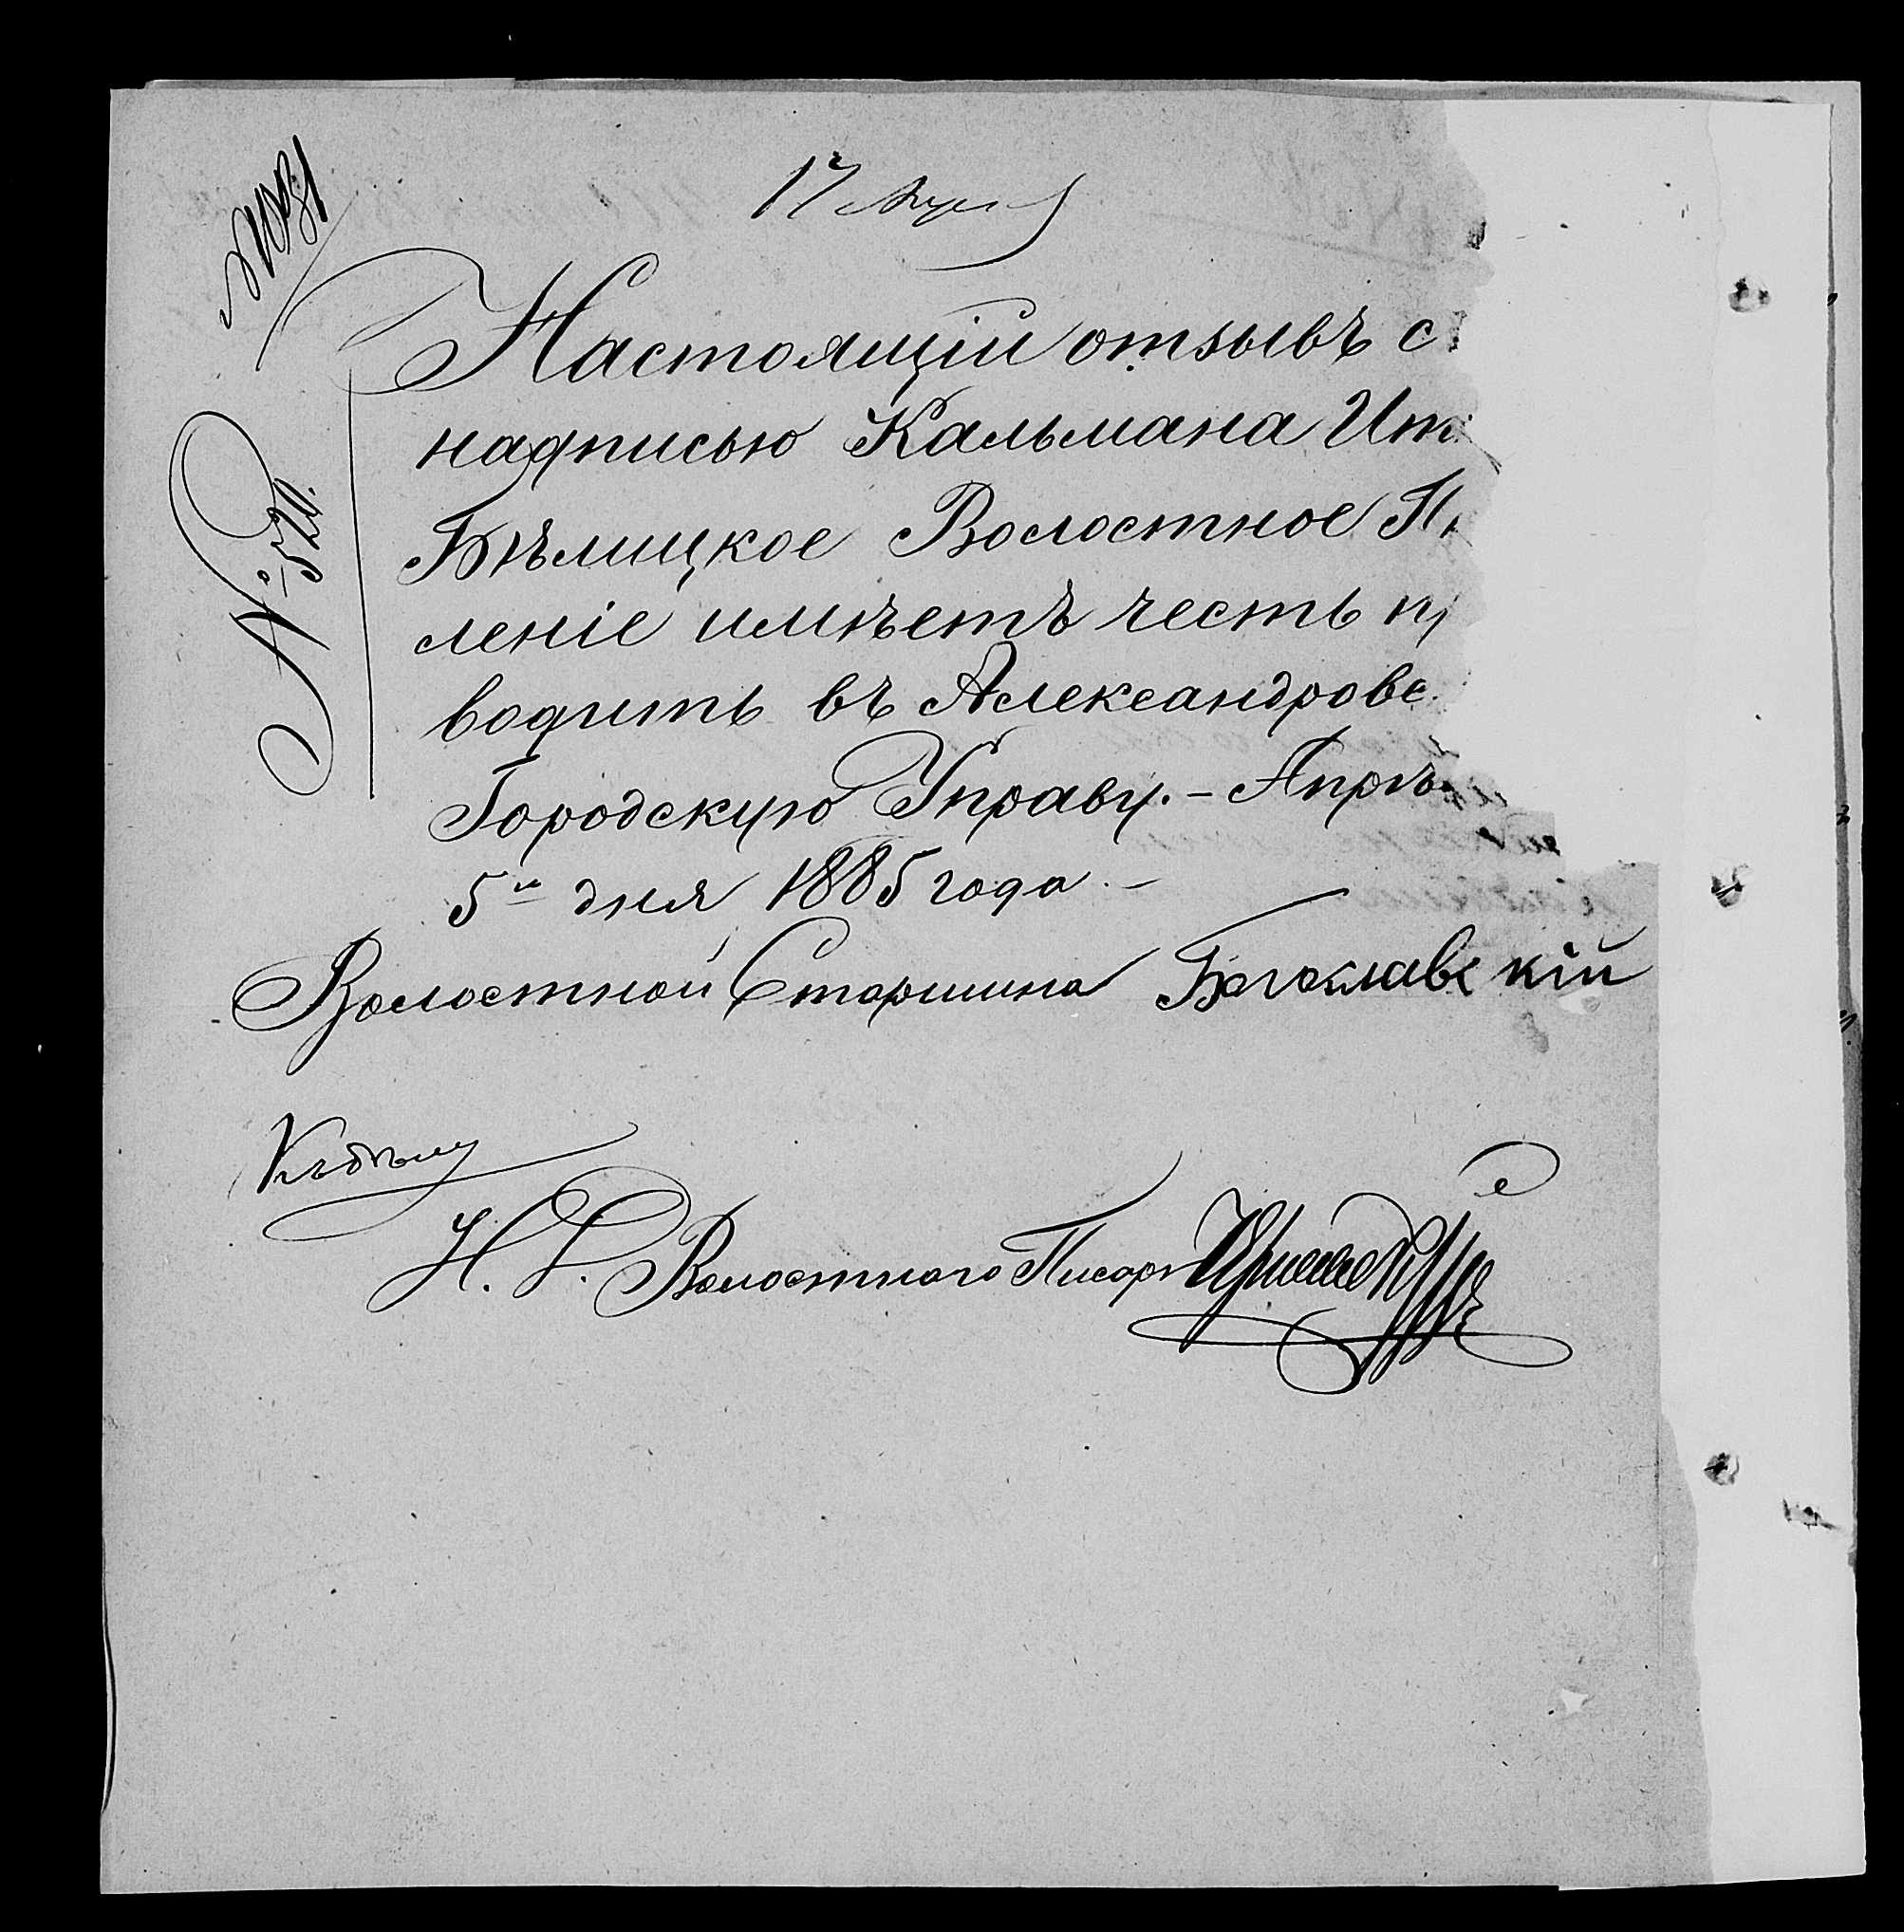 17 Апр
№ 1031
№ 520.
Настоящій отзывъ с
надписью Кальмана Ит
Бѣлицкое Волостное П
леніе имѣетъ честь пр
водить въ Александровс
Городскую Управу. – Апрѣ
5го дня 1885 года. –
Волостной Старшина Богославскій
Къ дѣлу
И. Д. Волостного Писаря